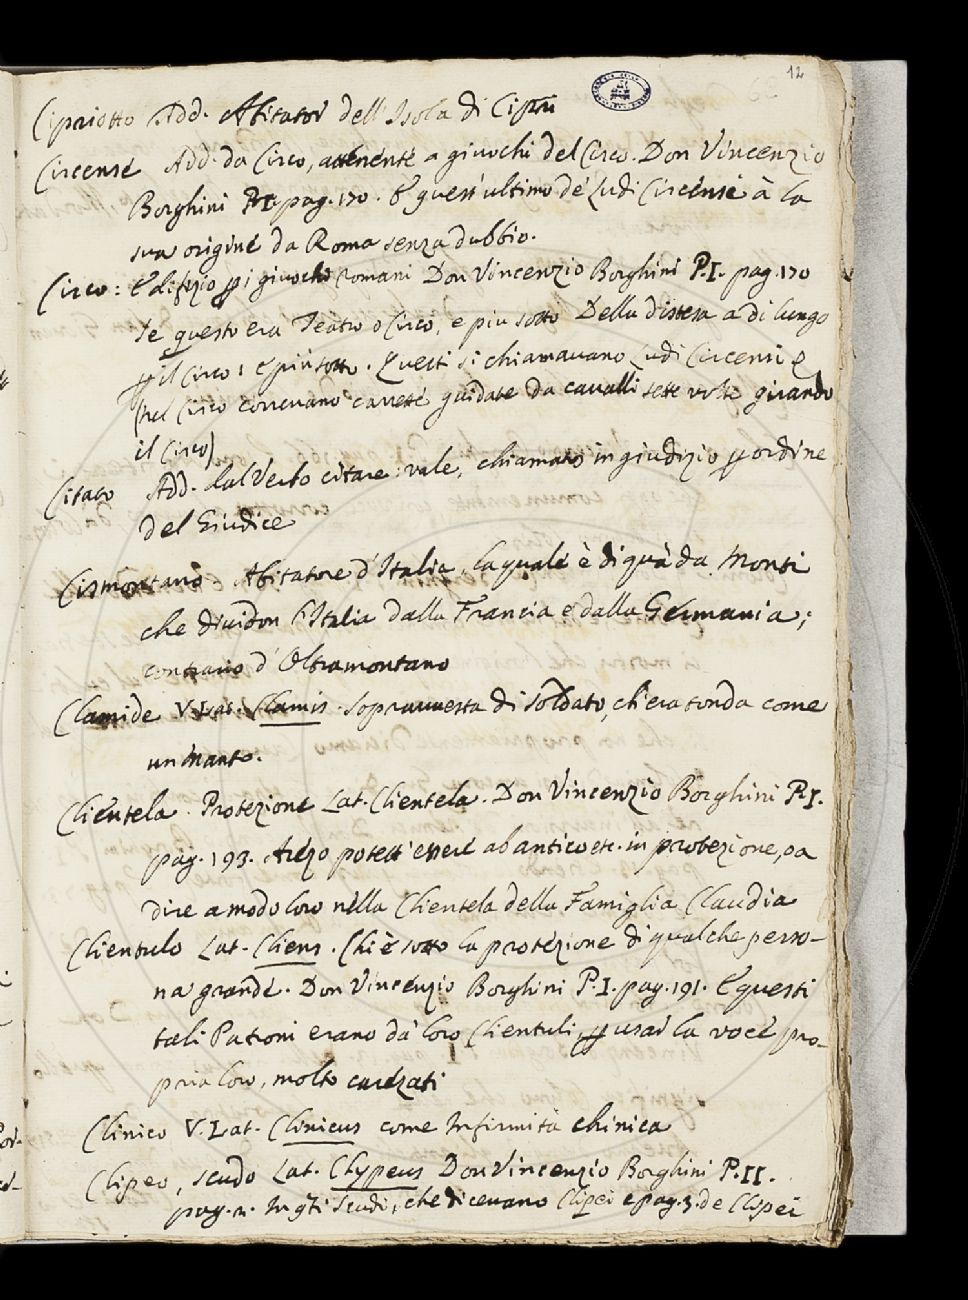 12
Cipriotto Add. Abitator dell'Isola di Cipru
Circense Add. da Circo, attenente a giuochi del Circo. Don Vincenzio
Borghini P.I. pag. 170. E quest'ultimo de' Ludi Circensi à la
sua origine da Roma senza dubbio.
Circo: Edifizio p i giuochi romani Don Vincenzio Borghini P.I. pag. 170
Se questo era Teatro o Circo, e più sotto Della distesa a di lungo
p il Circo; e più sotto. Questi si chiamavano Ludi Circensi e
(nel Circo correvano carrete guidate da cavalli sette volte girando
il Circo)
Citato Add. dal Verbo citare: vale, chiamato in giudizio p ordine
del Giudice
Cismontano. Abitatore d'Italia, la quale è di quà da Monti
che dividon l'Italia dalla Francia e dalla Germania;
contrario d'Oltramontano
Clamide V. Lat. Clamis. sopravvesta di soldato, ch'era tonda come
un manto.
Clientela. Protezione Lat. Clientela. Don Vincenzio Borghini P.I.
pag. 193. Arezo potett'essere ab antico etc. in protezione, o a
dire a modo loro nella Clientela della Famiglia Claudia
Clientulo Lat. Cliens. Chi è sotto la protezione di qualche perso-
na grande. Don Vincenzio Borghini P.I. pag. 191. E questi
tali Patroni erano da' loro Clientuli, p usar la voce pro-
pria loro, molto carezati
Clinico V. Lat. Clinicus come Infirmità chinica
Clipeo, scudo Lat. Clypeus Don Vincenzio Borghini P.II.
pag. 2. In qti Scudi, che dicevano Clipei e pag. 3. de Clipei